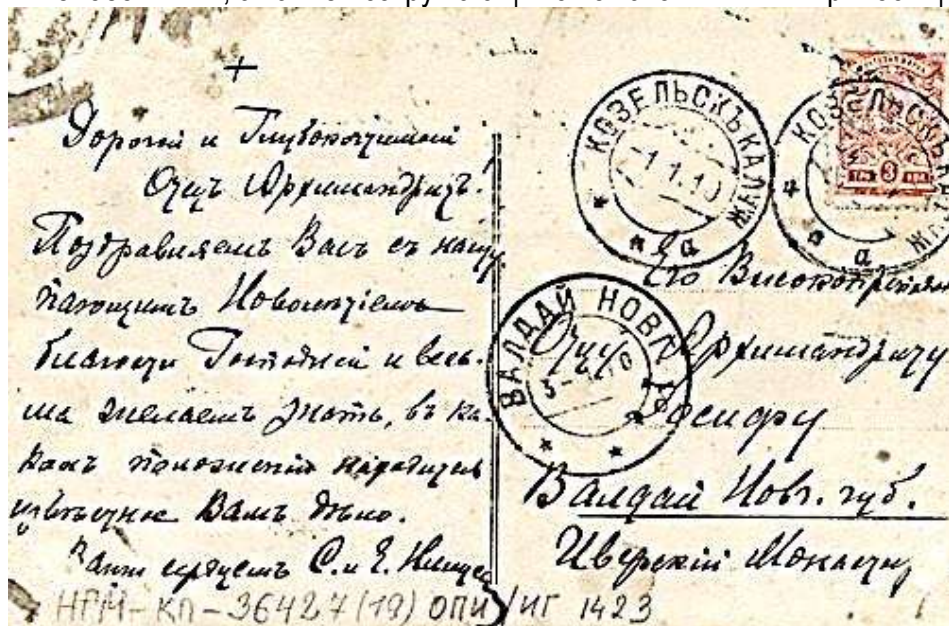 Дорогой и Глубокочтимый
Отецъ Архимандритъ!
Поздравляемъ Васъ съ насту
пающимъ Новолѣтіемъ
благости Господней и весь-
ма желаемъ знать, въ ка-
комъ положеніи находится
извѣстное Вамъ дѣло.
сердцемъ С. и Е.
КОЗЕЛЬСКЪ КАЛУЖ
-1.1.10
а
КОЗЕЛЬСКЪ
а
3
ВАЛДАЙ НОВГ.
Его Высокопрепод
Отцу Архимандриту
Іосифу
Валдай Новг. губ.
Иверскій Монастырь
НГМ-КП-36427(19) ОПИ/ИГ 1423